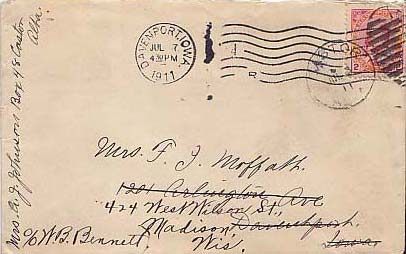 DAVENPORT, IOWA.
JUL 7
4 30 PM
1911
2
Mrs. F. J. Moffath.
1201 Arlington Ave
424 West Wilson St.,
Madison, Davenport.
Wis. Iowa
c/o W. B. Bennett,
Mrs. A. J. Johnson Box 48 Castor
Alta.